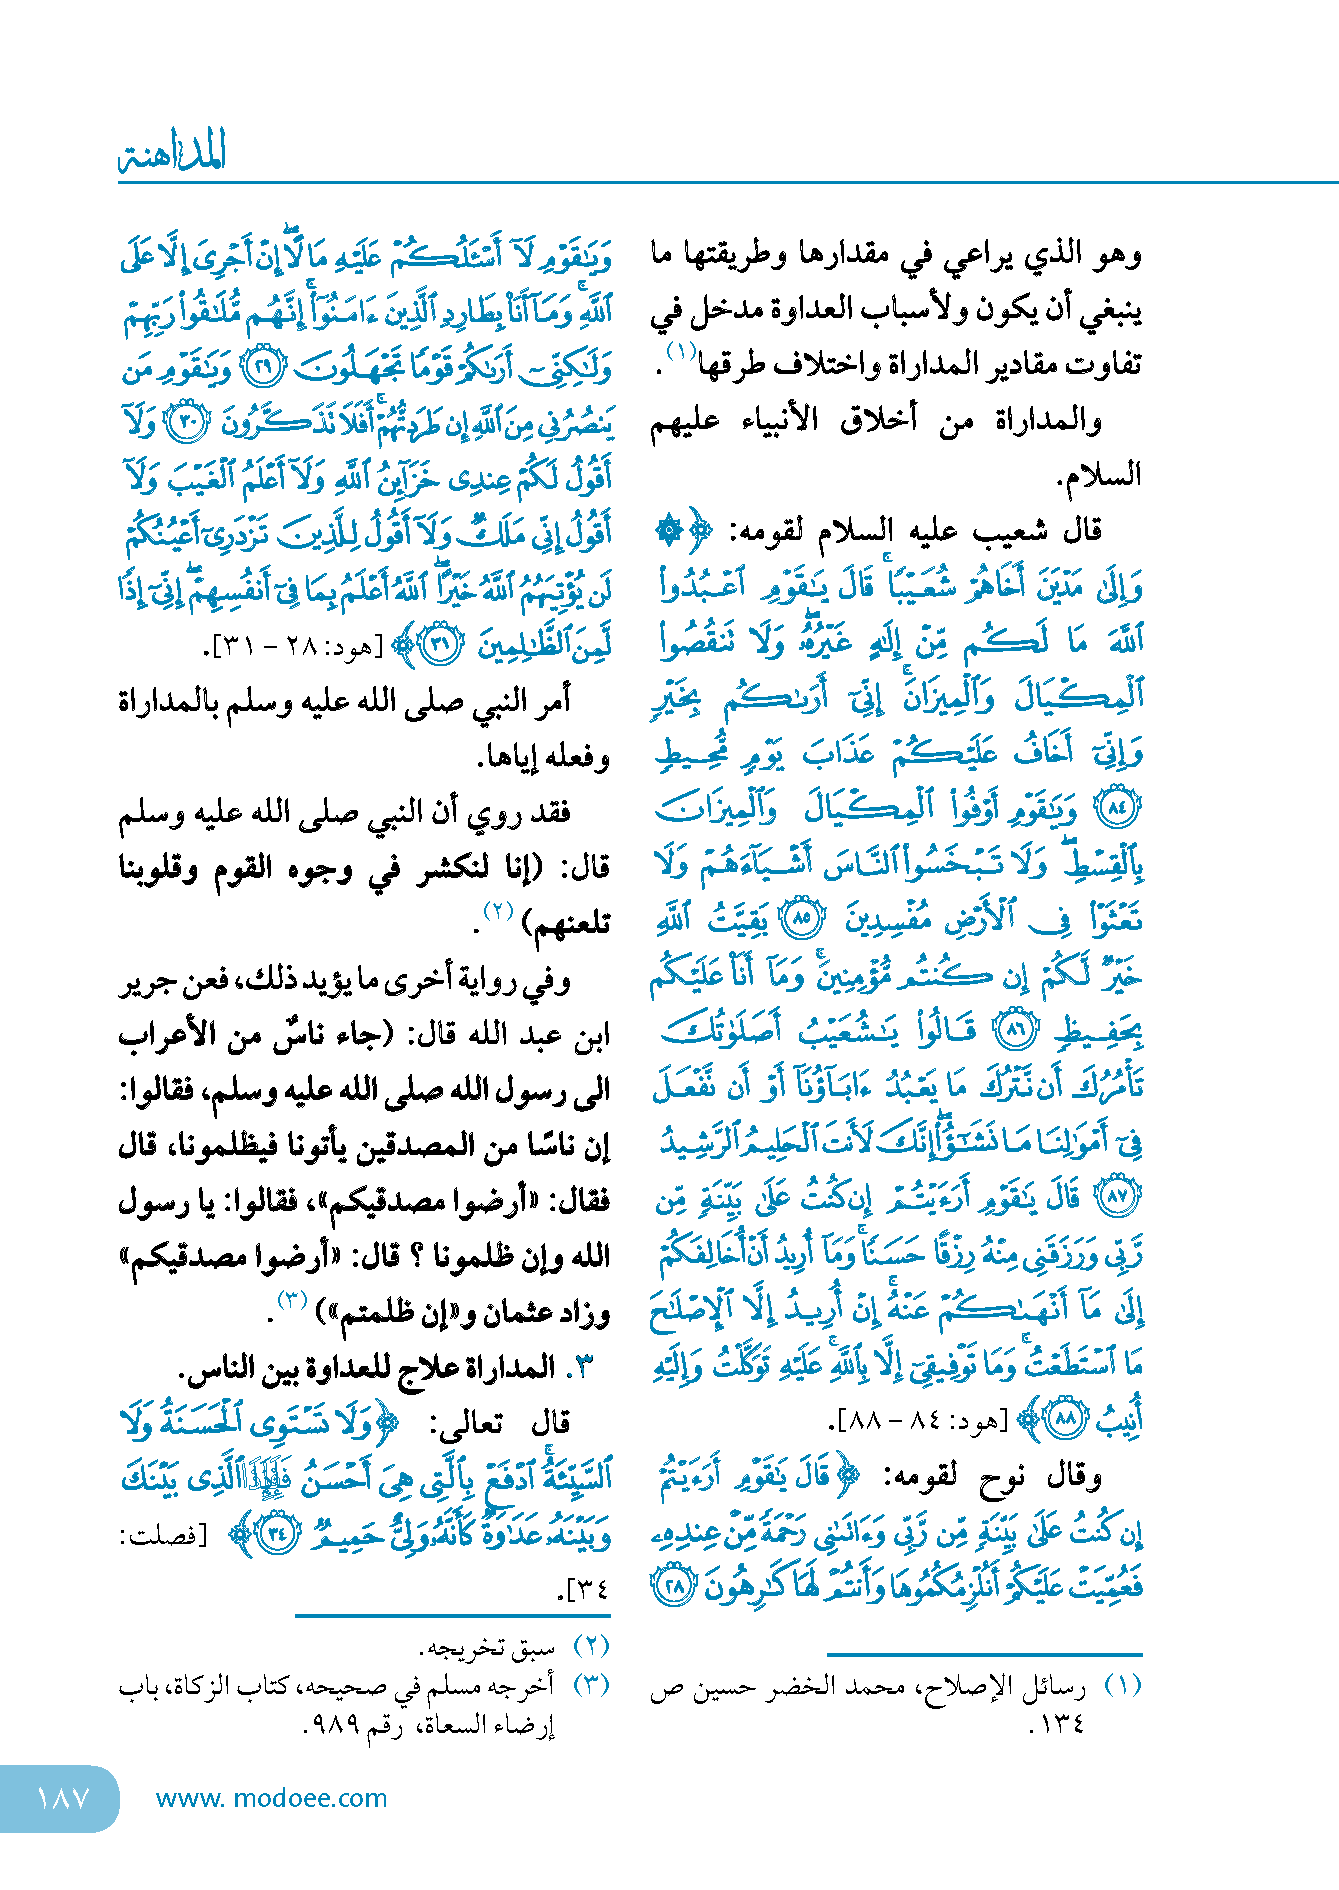 المداهنة
وهو الذي يراعي في مقدارها وطريقتها ما
ينبغي أن يكون ولأسباب العداوة مدخل في
تفاوت مقادير المداراة واختلاف طرقها(١).
والمداراة من أخلاق الأنبياء عليهم
السلام.
قال شعيب عليه السلام لقومه: ﴿۞
وَإِلَىٰ مَدْيَنَ أَخَاهُمْ شُعَيْبًا ۚ قَالَ يَـٰقَوْمِ ٱعْبُدُوا۟
ٱللَّهَ مَا لَكُم مِّنْ إِلَـٰهٍ غَيْرُهُۥ ۖ وَلَا تَنقُصُوا۟
ٱلْمِكْيَالَ وَٱلْمِيزَانَ ۚ إِنِّىٓ أَرَىٰكُم بِخَيْرٍ
وَإِنِّىٓ أَخَافُ عَلَيْكُمْ عَذَابَ يَوْمٍ مُّحِيطٍ
﴿٨٤﴾ وَيَـٰقَوْمِ أَوْفُوا۟ ٱلْمِكْيَالَ وَٱلْمِيزَانَ
بِٱلْقِسْطِ ۖ وَلَا تَبْخَسُوا۟ ٱلنَّاسَ أَشْيَآءَهُمْ وَلَا
تَعْثَوْا۟ فِى ٱلْأَرْضِ مُفْسِدِينَ ﴿٨٥﴾ بَقِيَّتُ ٱللَّهِ
خَيْرٌ لَّكُمْ إِن كُنتُم مُّؤْمِنِينَ ۚ وَمَآ أَنَا۠ عَلَيْكُم
بِحَفِيظٍ ﴿٨٦﴾ قَالُوا۟ يَـٰشُعَيْبُ أَصَلَوٰتُكَ
تَأْمُرُكَ أَن نَّتْرُكَ مَا يَعْبُدُ ءَابَآؤُنَآ أَوْ أَن نَّفْعَلَ
فِىٓ أَمْوَٰلِنَا مَا نَشَـٰٓؤُا۟ ۖ إِنَّكَ لَأَنتَ ٱلْحَلِيمُ ٱلرَّشِيدُ
﴿٨٧﴾ قَالَ يَـٰقَوْمِ أَرَءَيْتُمْ إِن كُنتُ عَلَىٰ بَيِّنَةٍ مِّن
رَّبِّى وَرَزَقَنِى مِنْهُ رِزْقًا حَسَنًا ۚ وَمَآ أُرِيدُ أَنْ أُخَالِفَكُمْ
إِلَىٰ مَآ أَنْهَىٰكُمْ عَنْهُ ۚ إِنْ أُرِيدُ إِلَّا ٱلْإِصْلَـٰحَ
مَا ٱسْتَطَعْتُ ۚ وَمَا تَوْفِيقِىٓ إِلَّا بِٱللَّهِ ۚ عَلَيْهِ تَوَكَّلْتُ وَإِلَيْهِ
أُنِيبُ ﴿٨٨﴾﴾ [هود: ٨٤ – ٨٨].
وقال نوح لقومه: ﴿قَالَ يَـٰقَوْمِ أَرَءَيْتُمْ
إِن كُنتُ عَلَىٰ بَيِّنَةٍ مِّن رَّبِّى وَءَاتَىٰنِى رَحْمَةً مِّنْ عِندِهِۦ
فَعُمِّيَتْ عَلَيْكُمْ أَنُلْزِمُكُمُوهَا وَأَنتُمْ لَهَا كَـٰرِهُونَ ﴿٢٨﴾
(١) رسائل الإصلاح، محمد الخضر حسين ص
١٣٤.
وَيَـٰقَوْمِ لَآ أَسْـَٔلُكُمْ عَلَيْهِ مَالًا ۖ إِنْ أَجْرِىَ إِلَّا عَلَى
ٱللَّهِ ۚ وَمَآ أَنَا۠ بِطَارِدِ ٱلَّذِينَ ءَامَنُوٓا۟ ۚ إِنَّهُم مُّلَـٰقُوا۟ رَبِّهِمْ
وَلَـٰكِنِّىٓ أَرَىٰكُمْ قَوْمًا تَجْهَلُونَ ﴿٢٩﴾ وَيَـٰقَوْمِ مَن
يَنصُرُنِى مِنَ ٱللَّهِ إِن طَرَدتُّهُمْ ۚ أَفَلَا تَذَكَّرُونَ ﴿٣٠﴾ وَلَآ
أَقُولُ لَكُمْ عِندِى خَزَآئِنُ ٱللَّهِ وَلَآ أَعْلَمُ ٱلْغَيْبَ وَلَآ
أَقُولُ إِنِّى مَلَكٌ وَلَآ أَقُولُ لِلَّذِينَ تَزْدَرِىٓ أَعْيُنُكُمْ
لَن يُؤْتِيَهُمُ ٱللَّهُ خَيْرًا ۖ ٱللَّهُ أَعْلَمُ بِمَا فِىٓ أَنفُسِهِمْ ۖ إِنِّىٓ إِذًا
لَّمِنَ ٱلظَّـٰلِمِينَ ﴿٣١﴾﴾ [هود: ٢٨ – ٣١].
أمر النبي صلى الله عليه وسلم بالمداراة
وفعله إياها.
فقد روي أن النبي صلى الله عليه وسلم
قال: (إنا لنكشر في وجوه القوم وقلوبنا
تلعنهم)(٢).
وفي رواية أخرى ما يؤيد ذلك، فعن جرير
ابن عبد الله قال: (جاء ناسٌ من الأعراب
الى رسول الله صلى الله عليه وسلم، فقالوا:
إن ناسًا من المصدقين يأتونا فيظلمونا، قال
فقال: «أرضوا مصدقيكم»، فقالوا: يا رسول
الله وإن ظلمونا ؟ قال: «أرضوا مصدقيكم»
وزاد عثمان و«إن ظلمتم»)(٣).
٣. المداراة علاج للعداوة بين الناس.
قال تعالى: ﴿وَلَا تَسْتَوِى ٱلْحَسَنَةُ وَلَا
ٱلسَّيِّئَةُ ۚ ٱدْفَعْ بِٱلَّتِى هِىَ أَحْسَنُ فَإِذَا ٱلَّذِى بَيْنَكَ
وَبَيْنَهُۥ عَدَٰوَةٌ كَأَنَّهُۥ وَلِىٌّ حَمِيمٌ ﴿٣٤﴾﴾ [فصلت:
٣٤].
(٢) سبق تخريجه.
(٣) أخرجه مسلم في صحيحه، كتاب الزكاة، باب
إرضاء السعاة، رقم ٩٨٩.
١٨٧
www. modoee.com